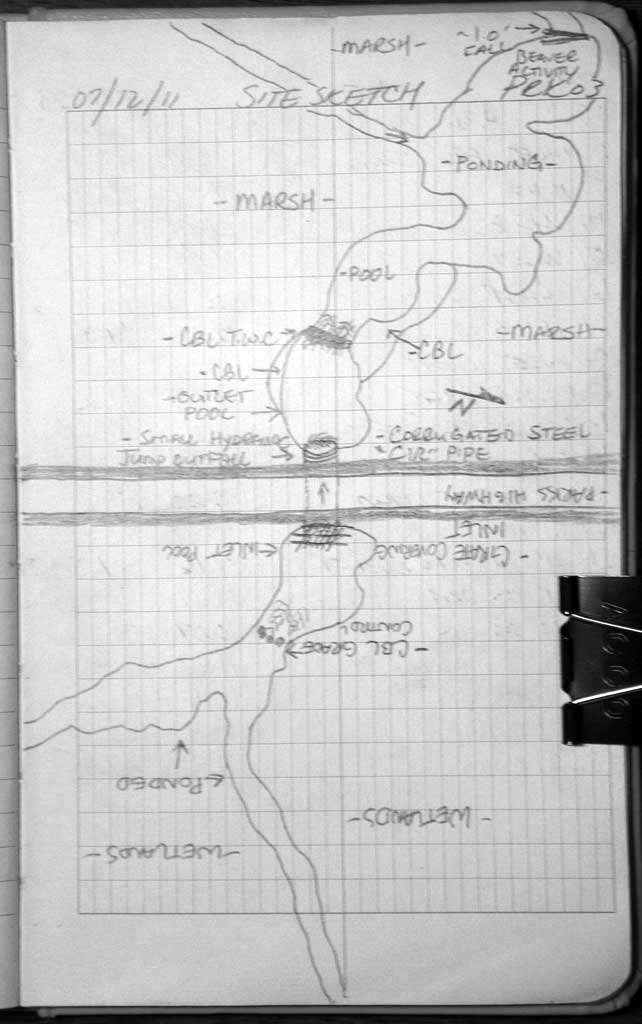 - MARSH -
~1.0'
FALL
BEAVER
ACTIVITY
07/12/11
SITE SKETCH
PRK03
- PONDING -
- MARSH -
- POOL
- CBL T.W.C
- CBL
- MARSH -
- CBL
- OUTLET
POOL
N
- SMALL HYDRAULIC
JUMP OUTFALL
- CORRUGATED STEEL
CIR. PIPE
- PARKS HIGHWAY
- GRATE COVERING
INLET
INLET POOL
- CBL GRADE
CONTROL
PONDED
- WETLANDS -
- WETLANDS -